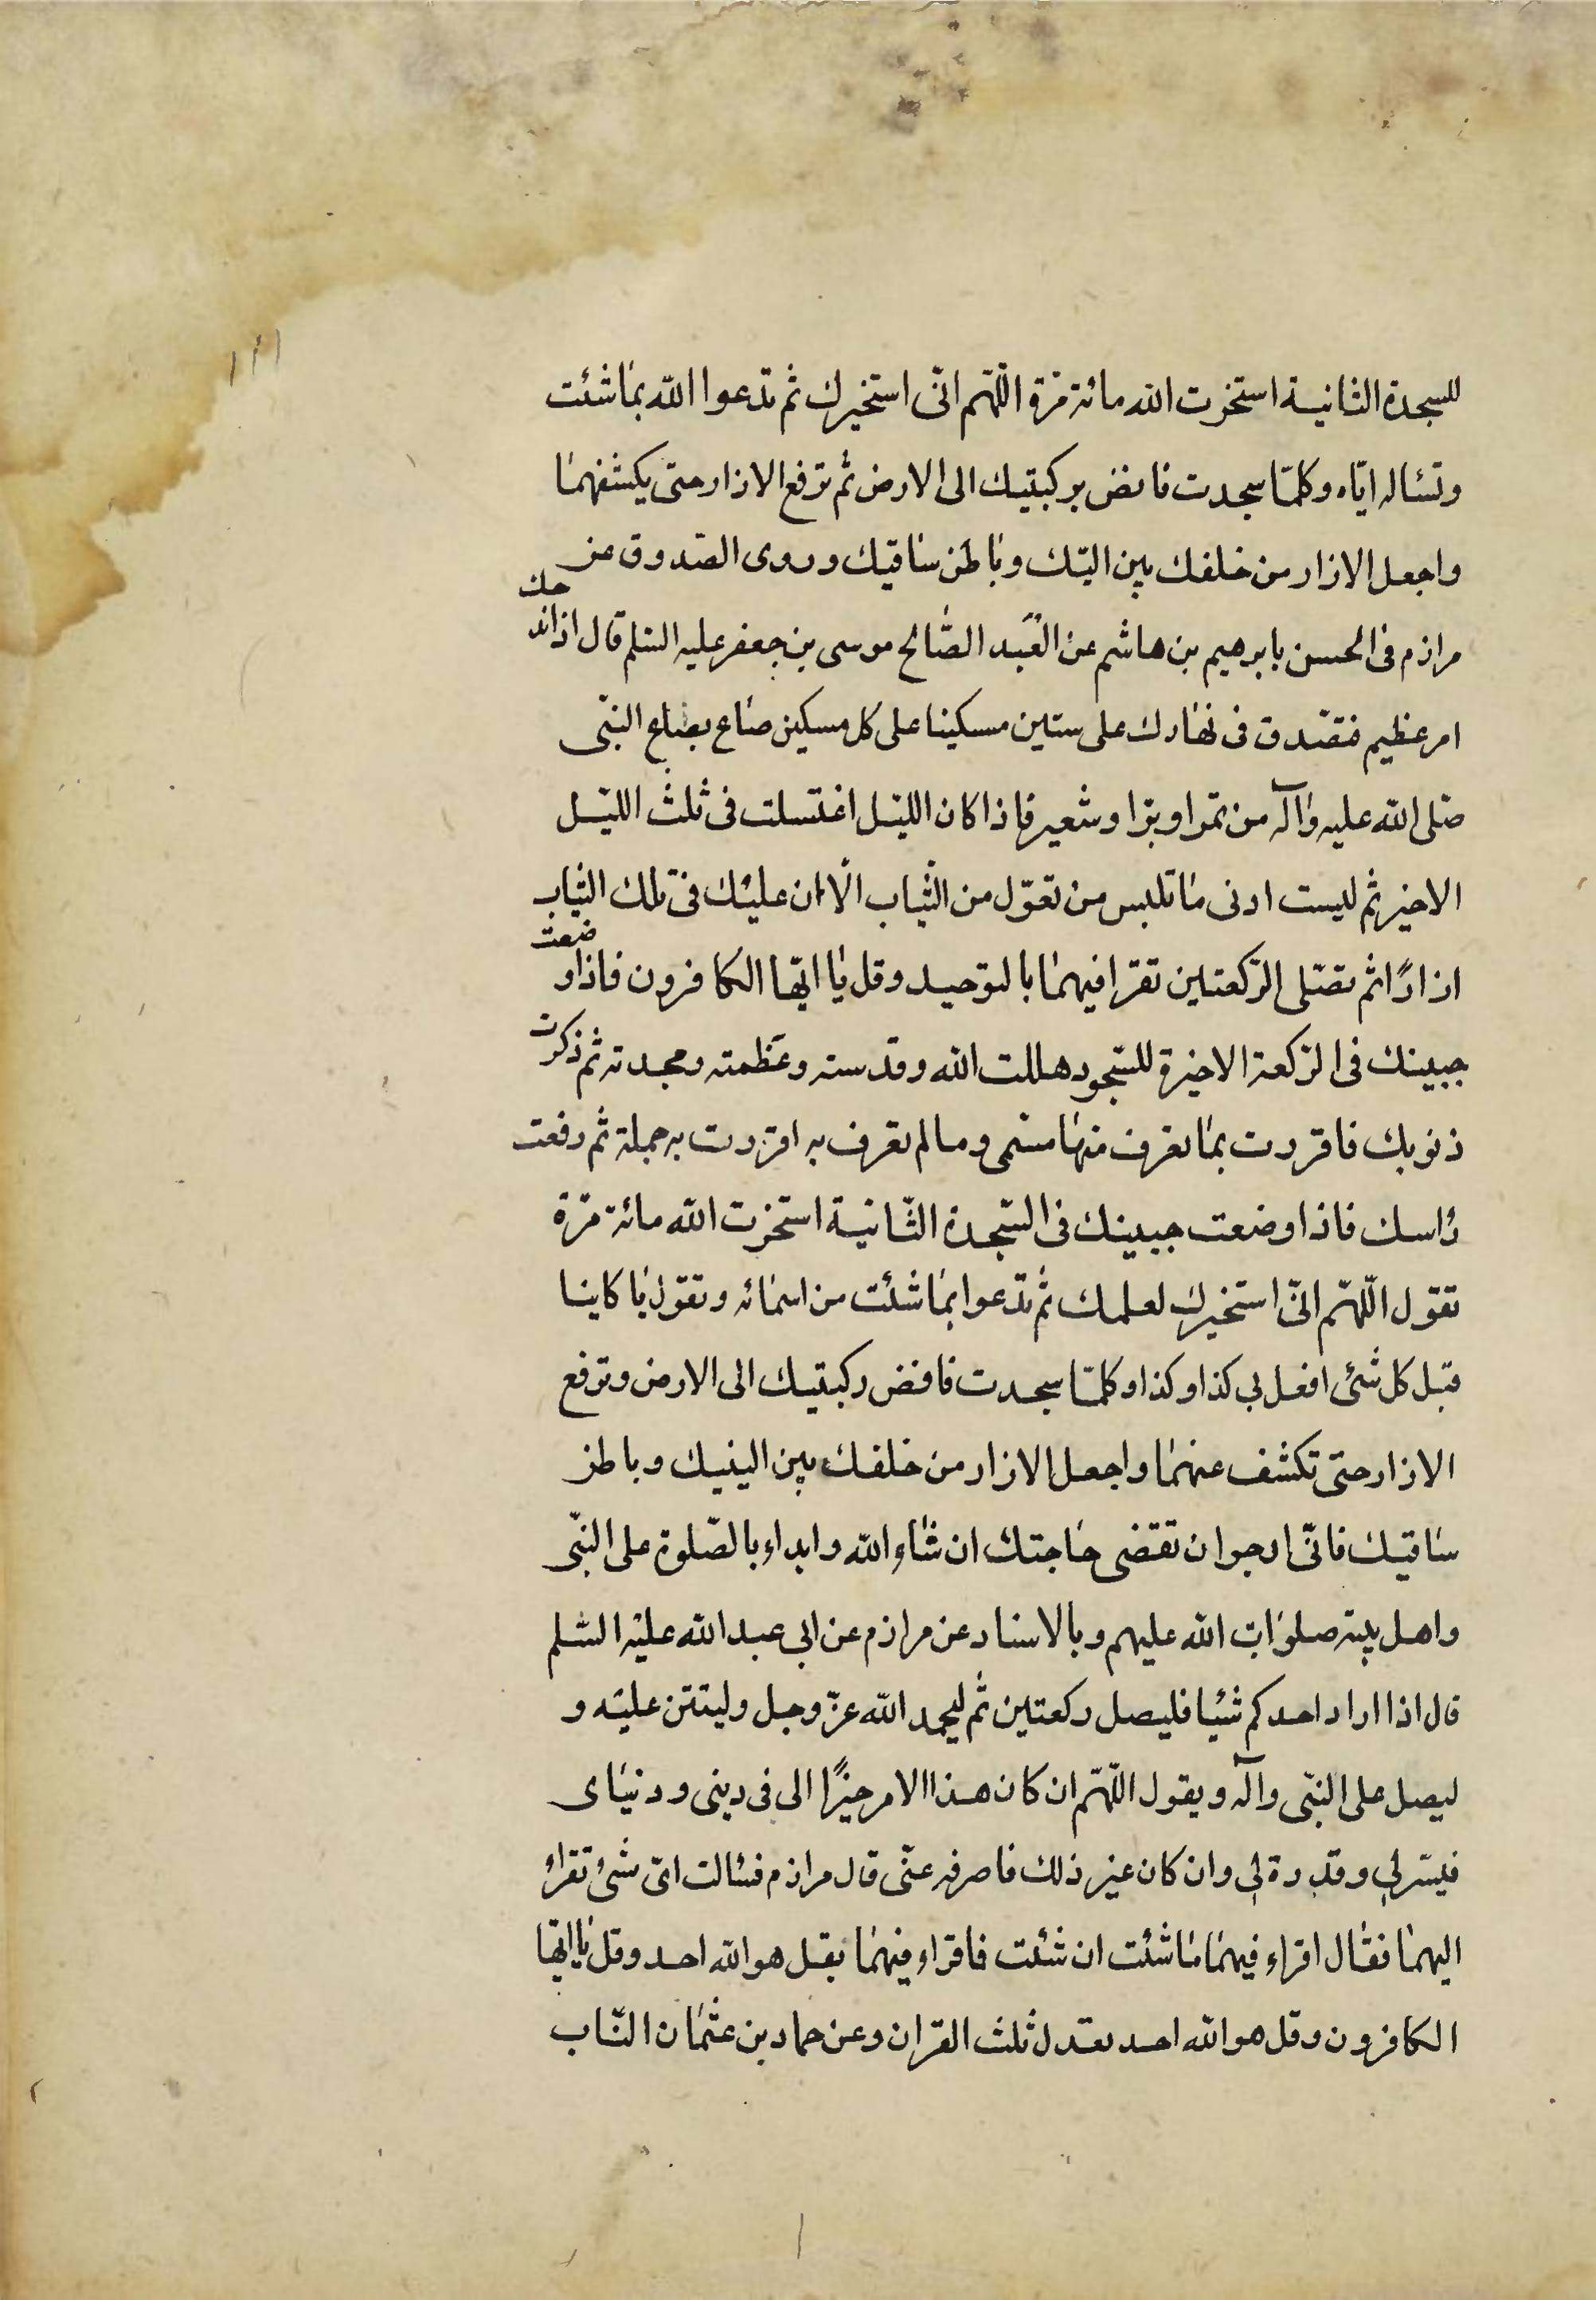 للسجدة الثانية استخرت الله مائة مرة اللّهم انّى استخيرك ثم تدعوا الله بما شئت
وتسئاله ايّاه وكلمّا سجدت فافض بركبتيك الى الارض ثم ترفع الازار حتى يكشفهما
واجعل الازار من خلفك بين اليتك وباطن ساقيك وروى الصّدوق عن
مرازم فى الحسن بابرهيم بن هاشم عن العبد الصّالح موسى بن جعفر عليه السّلم قال اذا فدحك
امر عظيم فتصّدق فى نهارك على ستين مسكينا على كل مسكين صاع بصاع النبّى
صّلى الله عليه وآله من تمر او برّ او شعير فاذا كان الليّل اغتسلت فى ثلث الليّل
الاخير ثم لبست ادنى ما تلبس من تعوّل من الثّياب الّا ان عليك فى تلك الثياب
ازارًا ثم تصّلى الرّكعتين تقرا فيهما بالتوحيد وقل يا ايّها الكافرون فاذا وضعت
جبينك فى الرّكعة الاخيرة للسّجود هللت الله وقدسته وعظمته ومجدته ثم ذكرت
ذنوبك فاقررت بما تعرف منها مسّمى ومالم تعرف به اقررت به جملة ثم رفعت
رٔاسك فاذا وضعت جبينك فى السّجدة الثّانية استخرت الله مائة مرّة
تقول اللّهّم انّى استخيرك لعلمك ثم تدعوا بما شئت من اسمائه وتقول يا كاينا
قبل كل شئ افعل بى كذا وكذا وكلمّا سجدت فافض ركبتيك الى الارض وترفع
الازار حتى تكشف عنهما واجعل الازار من خلفك بين الينيك وباطن
ساقيك فانّى ارجوا ان تقضى حاجتك ان شاء الله وابداء بالصّلوة على النبّى
واهل بيته صلوات الله عليهم وبالاسناد عن مرازم عن ابى عبد الله عليه السّلم
قال اذا اراد احدكم شيئا فليصل ركعتين ثم ليحمد الله عزّ وجل وليثن عليه و
ليصل على النبّى وآله ويقول اللّهّم ان كان هذا الامر خيرًا لى فى دينى ودنياى
فيسّر لى وقدره لى وان كان غير ذلك فاصرفه عنّى قال مرازم فسئالت اىّ شئ تقراء
اليهما فقال اقراء فيهما ما شئت ان شئت فاقراء فيهما بقل هو الله احد وقل يا ايّها
الكافرون وقل هو الله احد تعدل ثلث القران وعن حماد بن عثمان النّاب